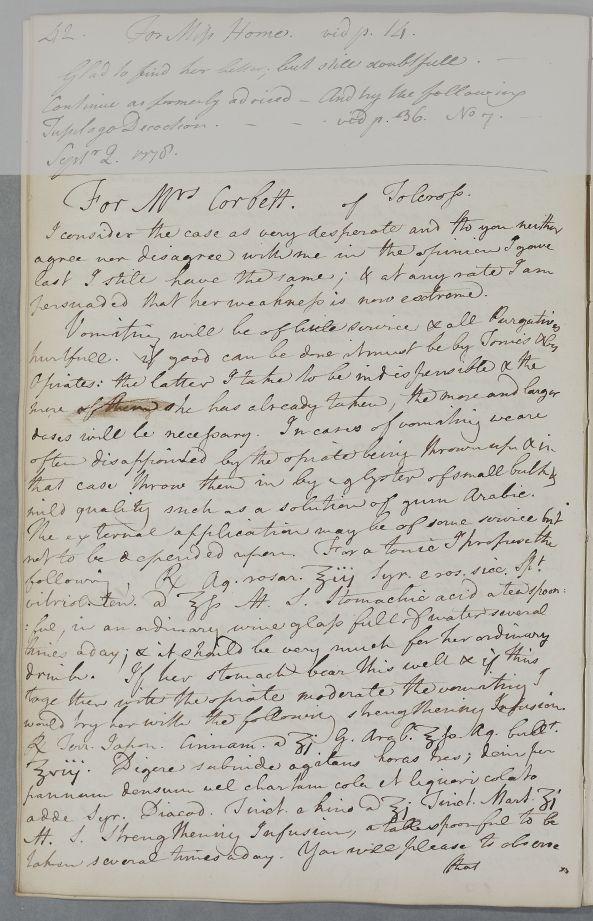 42. For Miss Home. vid p. 14.
Glad to find her better; but still doubtfull. —
Continue as formerly advised – And try the following
Tussilago Decoction. – – – vid p. 36. No 7. –
Septr 2. 1778.
For Mrs Corbett. of Tolcross.
I consider the case as very desperate and tho you neither
agree nor disagree with me in the opinion I gave
last I still have the same; & at any rate I am
persuaded that her weakness is now extreme.
Vomiting will be of little service & all Purgatives
hurtfull. if good can be done it must be by Tonics & by
Opiates: the latter I take to be indispensible & the
more of them she has already taken, the more and larger
doses will be necessary. In cases of vomiting we are
often disappointed by the opiate being thrown up & in
that case throw them in by a glyster of small bulk &
mild quality such as a solution of gum Arabic.
The external application may be of some service but
not to be depended upon. For a tonic I propose the
following, ℞ Aq. rosar. ℥iij Syr. e ros. sicc. Spt.
vitriol. ten. a ℥ss M. S. Stomachic acid a teaspoon:
:ful, in an ordinary wine glass full of water several
times a day; & it should be very much for her ordinary
drink. If her stomach bear this well & if this
together with the opiate moderate the vomiting I
would try her with the following strengthening Infusion.
℞ Terr. Japon. Cinnam. a ʒj G. Arab. ℥ss Aq. bullt.
℥viij. Digere subinde agitans horas tres; dein per
pannum densum vel chartam cola et liquori colato
adde Syr. Diacod. Tinct. e kino a ℥j Tinct. Mart. ʒj
M. S. Strengthening Infusion, a tablespoonful to be
taken several times a day. You will please to observe
that